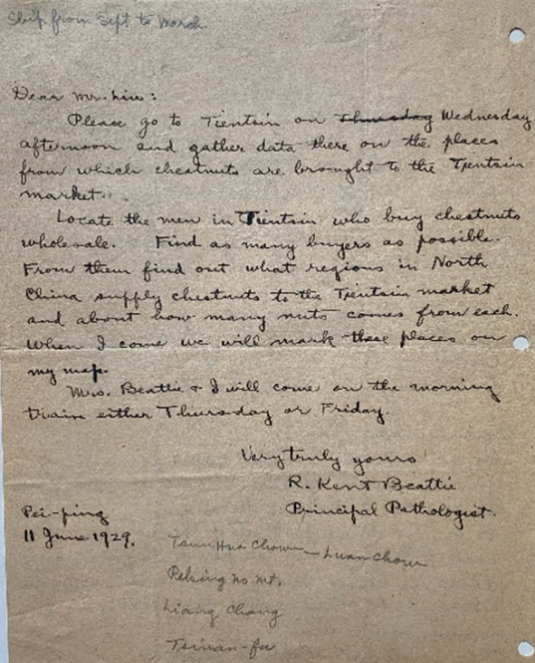 Ship from Sept to March.
Dear Mr. Liu:
Please go to Tientsin on Thursday Wednesday
afternoon and gather data there on the places
from which chestnuts are brought to the Tientsin
market.
Locate the men in Tientsin who buy chestnuts
wholesale. Find as many buyers as possible.
From them find out what regions in North
China supply chestnuts to the Tientsin market
and about how many nuts comes from each.
When I come we will mark these places on
my map.
Mrs. Beattie & I will come on the morning
train either Thursday or Friday.
Very truly yours
R. Kent Beattie
Principal Pathologist.
Pei-ping
11 June 1929.
Tsun Hua Chow - Luan Chow
Peking no mt.
Liang Chang
Tsinan-fu